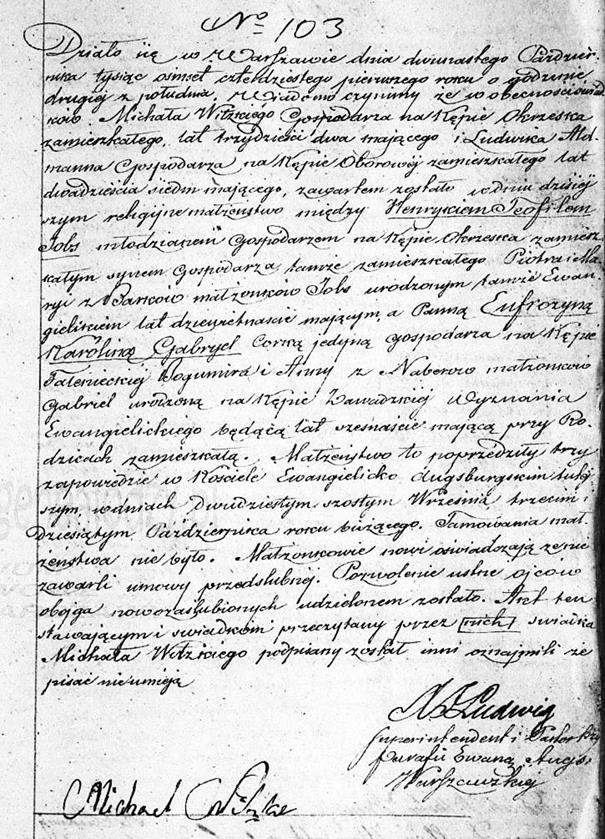 No 103
Działo się w Warszawie dnia dwunastego Paździer-
nika tysiąc osmset czterdziestego pierwszego roku o godzinie
drugiej z południa, Wiadomo czynimy że w obecności świad
ków Michała Witzkiego Gospodarza na Kępie Okrzeska
zamieszkałego, lat trzydzieści dwa mającego i Ludwika Alt-
manna Gospodarza na Kępie Oborowej zamieszkałego lat
dwadzieścia siedm mającego, zawartem zostało w dniu dzisiej
szym religijne małżeństwo między Henrykiem Teofilem
Jobs młodzianem Gospodarzem na Kępie Okrzeska zamiesz
kałym synem Gospodarza tamże zamieszkałego Piotra i Ma-
ryi z Barków małżonków Jobs urodzonym tamże Ewan-
gielikiem lat dziewiętnaście mającym, a Panną Eufrozyną
Karoliną Gabryel Corką jedyną gospodarza na Kępie
Falenieckiej Bogumira i Anny z Naberow małżonków
Gabriel urodzoną na Kępie Zawadzkiej Wyznania
Ewangielickiego będącą lat szesnaście mającą przy Ro-
dzicach zamieszkałą. Małżeństwo to poprzedziły trzy
zapowiedzie w Kościele Ewangielicko Augsburgskim tutej
szym, w dniach Dwudziestym szostym Września trzecim i
dziesiątym Października roku bieżącego. Tamowania mał-
żeństwa nie było. Małżonkowie nowi oświadczają że nie
zawarli umowy przedslubnej. Pozwolenie ustne ojców
obojga nowozaślubionych udzielonem zostało. Akt ten
stawającym i swiadkom przeczytany przez nich swiadka
Michała Witzkiego podpisany został inni oznajmili że
pisać nie umieją
Ludwig
Superintendent i Pastor
parafii Ewang Augs.
Warszawskiej
Michael Witzke